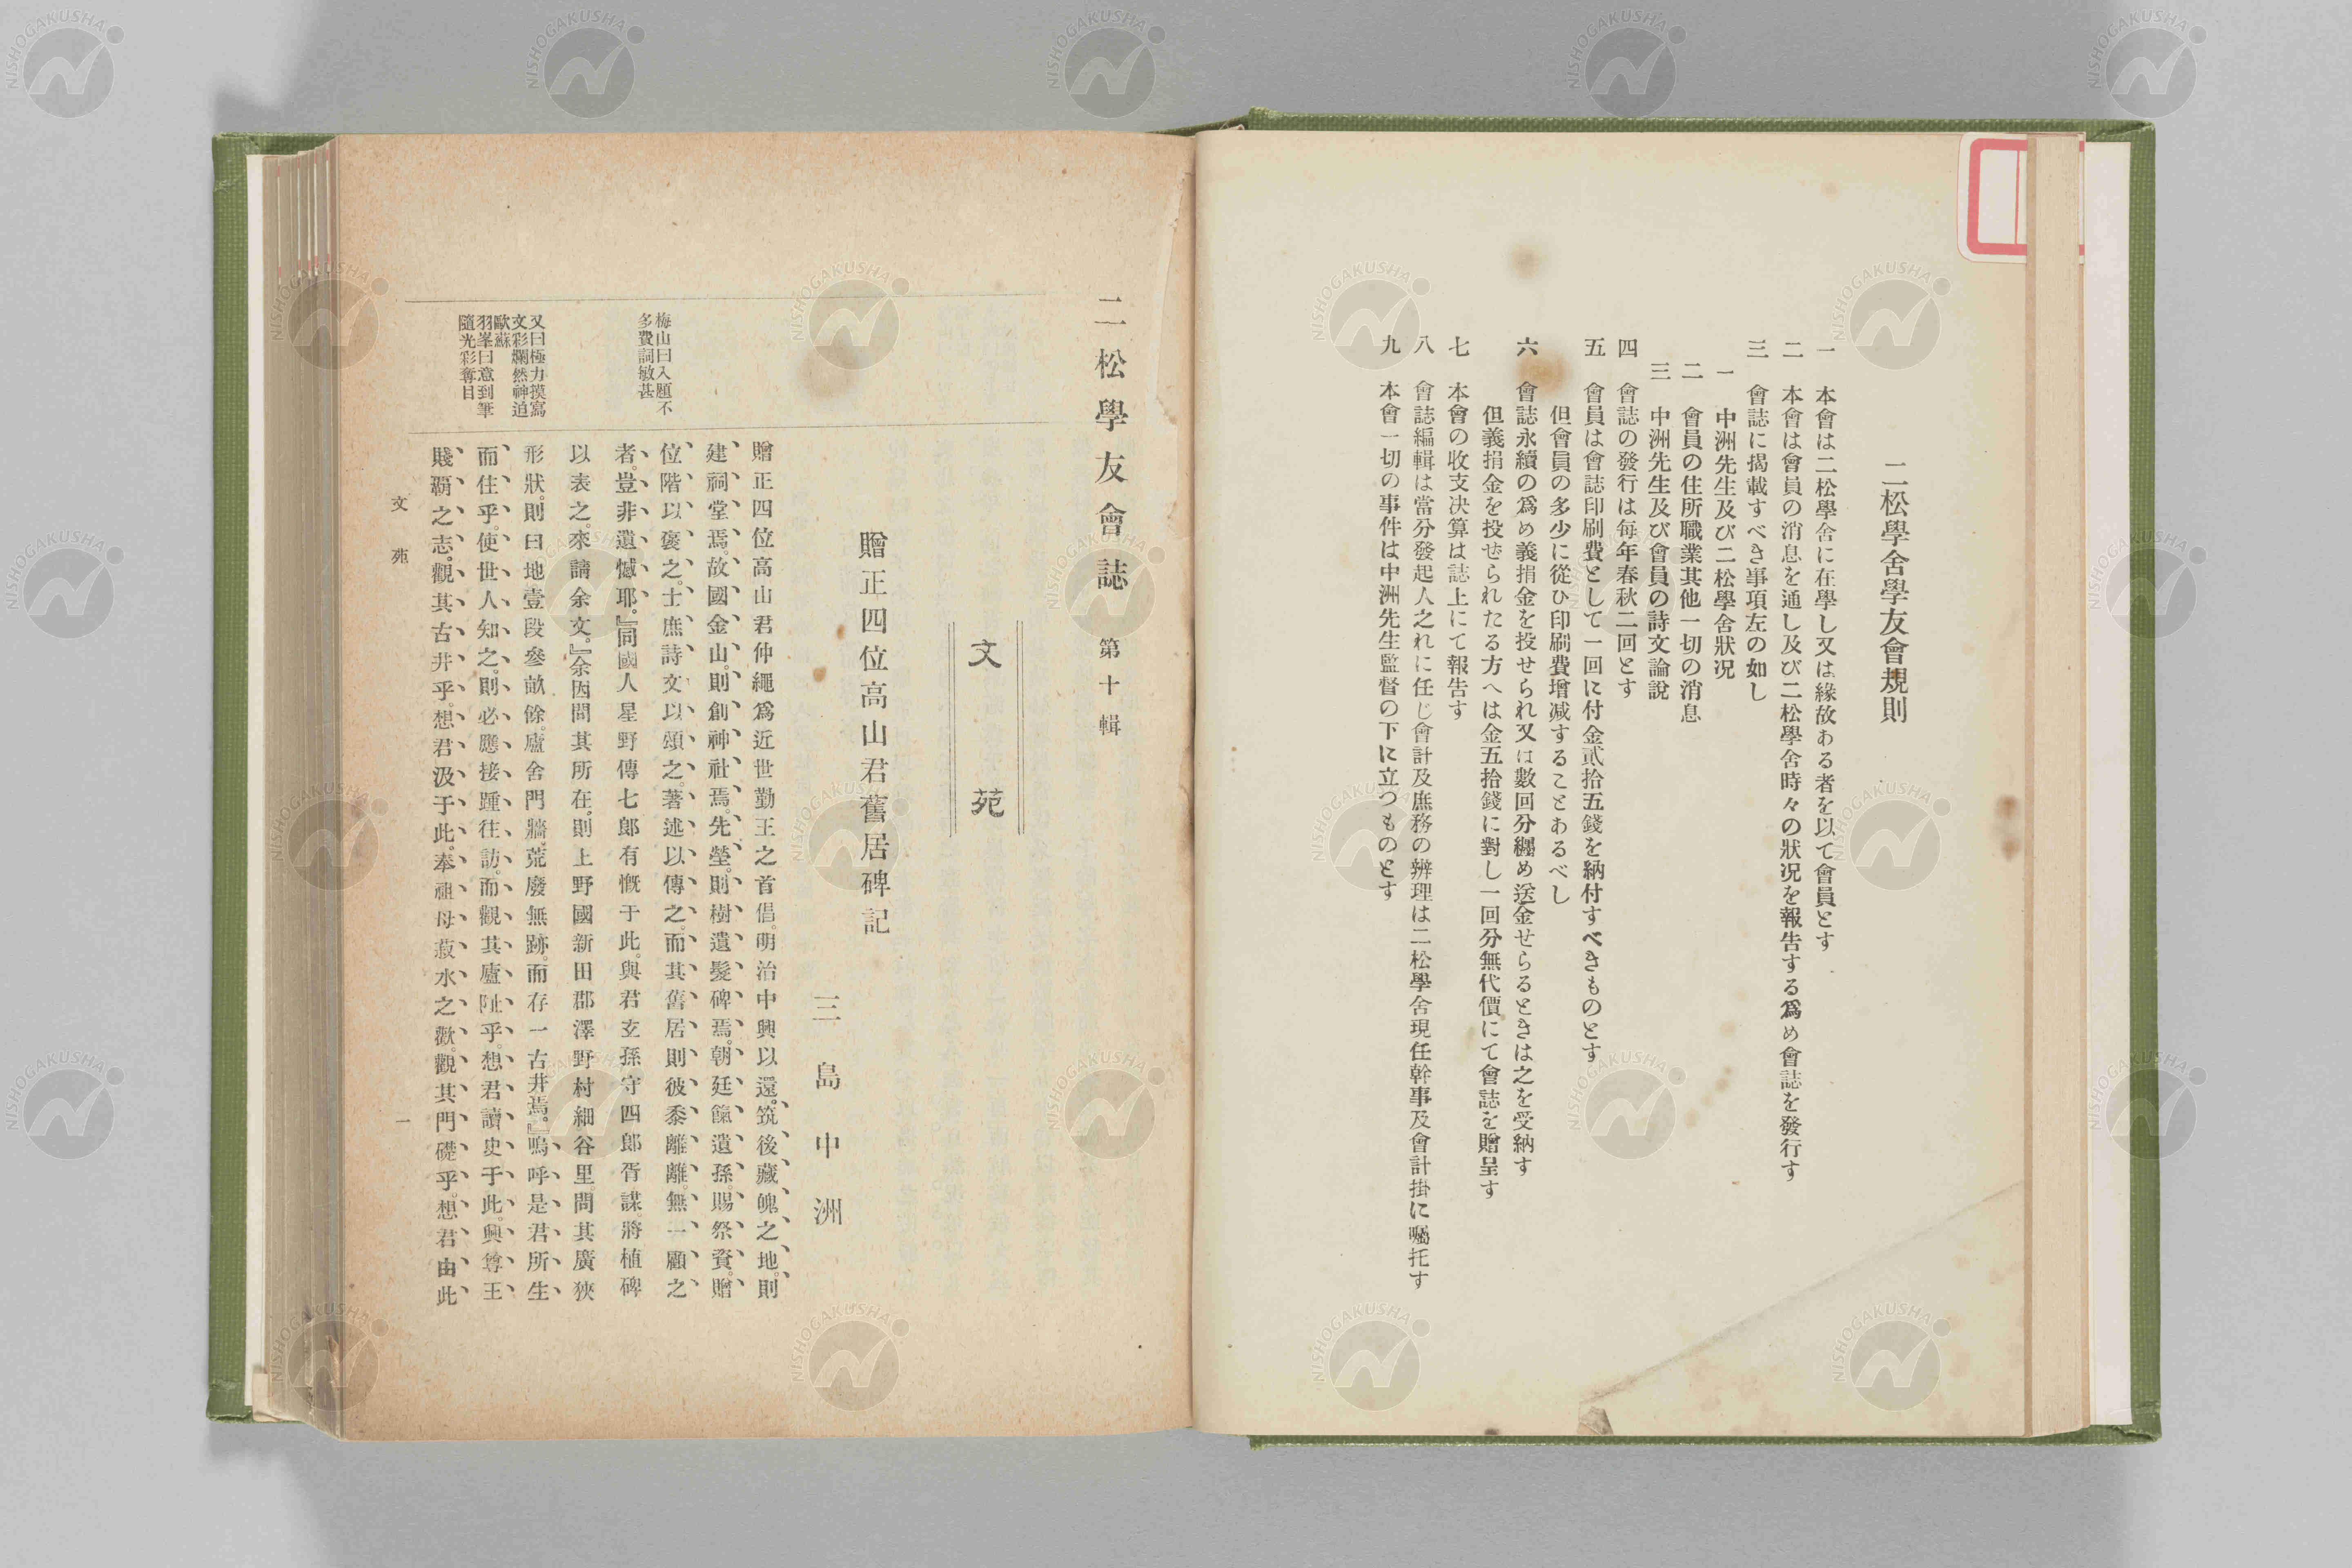 二松學舍學友會規則
一 本會は二松學舍に在學し又は緣故ある者を以て會員とす
二 本會は會員の消息を通し及び二松學舍時々の狀况を報告する爲め會誌を發行す
三 會誌に揭載すべき事項左の如し
一 中洲先生及び二松學舍狀况
二 會員の住所職業其他一切の消息
三 中洲先生及び會員の詩文論說
四 會誌の發行は每年春秋二回とす
五 會員は會誌印刷費として一回に付金貳拾五錢を納付すべきものとす
但會員の多少に從ひ印刷費增减することあるべし
六 會誌永續の爲め義捐金を投せられ又は數回分纒め送金せらるときは之を受納す
但義捐金を投せられたる方へは金五拾錢に對し一回分無代價にて會誌を贈呈す
七 本會の收支决算は誌上にて報告す
八 會誌編輯は當分發起人之れに任じ會計及庶務の辨理は二松學舍現任幹事及會計掛に囑托す
九 本會一切の事件は中洲先生監督の下に立つものとす
二松學友會誌 第十輯
文苑
贈正四位高山君舊居碑記
三島中洲
贈正四位高山君仲繩爲近世勤王之首倡。明治中興以還。筑後藏魄之地。則
建祠堂焉。故國金山。則創神社焉。先塋。則樹遺髮碑焉。朝廷餼遺孫。賜祭資。贈
位階以褒之。士庶詩文以頌之。著述以傳之。而其舊居則彼黍離離。無一顧之
者。豈非遺憾耶。』同國人星野傳七郎有慨于此。與君玄孫守四郎胥謀。將植碑
以表之。來請余文。』余因問其所在。則上野國新田郡澤野村細谷里。問其廣狹
形狀。則曰地壹段參畝餘。廬舍門牆。荒廢無跡。而存一古井焉。』嗚呼是君所生
而住乎。使世人知之。則必應接踵往訪。而觀其廬趾乎。想君讀史于此。興尊王
賤覇之志。觀其古井乎。想君汲于此。奉祖母菽水之歡。觀其門礎乎。想君由此
梅山曰入題不
多費詞敏甚
又曰極力摸寫
文彩爛然神追
歐蘇
羽峯曰意到筆
隨光彩奪目
文苑
一
NISHOGAKUSHA